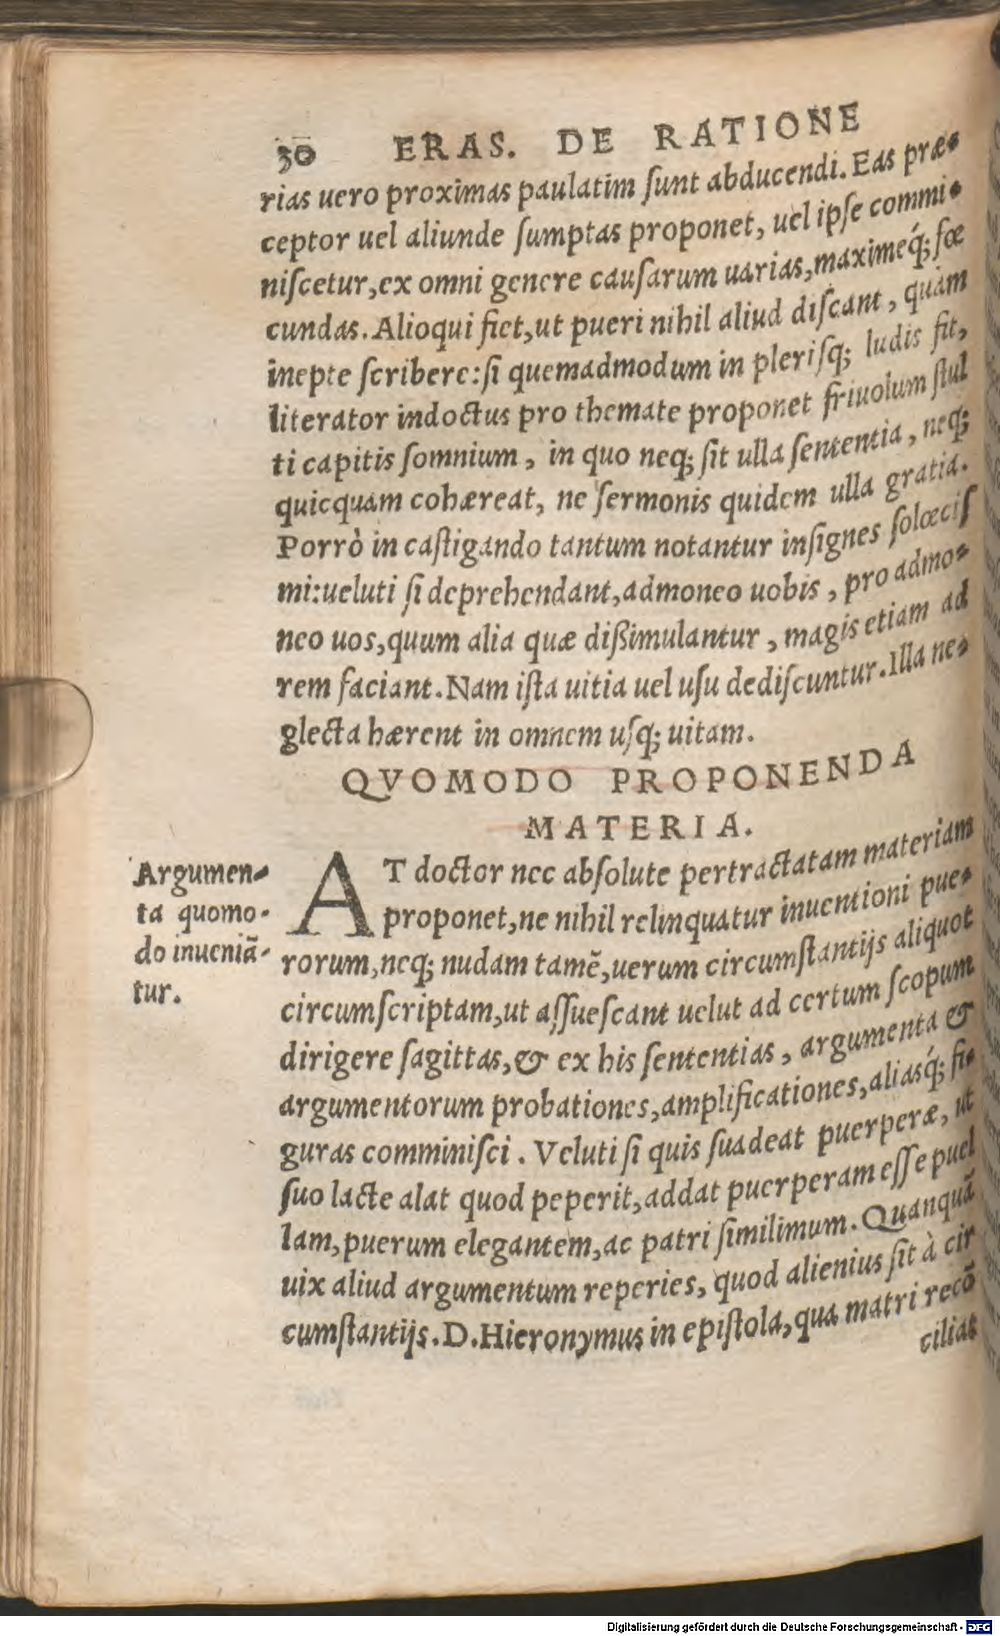 30 ERAS. DE RATIONE
rias uero proximas paulatim ſunt abducendi. Eas præ-
ceptor uel aliunde ſumptas proponet, uel ipſe commi-
niſcetur, ex omni genere cauſarum uarias, maximeq́; fœ
cundas. Alioqui fiet, ut pueri nihil aliud diſcant, quàm
inepte ſcribere: ſi quemadmodum in pleriſq; ludis fit,
literator indoctus pro themate proponet friuolum ſtul
ti capitis ſomnium, in quo neq; ſit ulla ſententia, neq;
quicquam cohæreat, ne ſermonis quidem ulla gratia.
Porrò in caſtigando tantum notantur inſignes ſolœciſ
mi: ueluti ſi deprehendant, admoneo uobis, pro admo-
neo uos, quum alia quæ dißimulantur, magis etiam ad
rem faciant. Nam iſta uitia uel uſu dediſcuntur. Illa ne-
glecta hærent in omnem uſq; uitam.
QVOMODO PROPONENDA
MATERIA.
Argumen-
ta quomo-
do inueniã-
tur.
AT doctor nec abſolute pertractatam materiam
proponet, ne nihil relinquatur inuentioni pue-
rorum, neq; nudam tamẽ, uerum circumſtantijs aliquot
circumſcriptam, ut aſſueſcant uelut ad certum ſcopum
dirigere ſagittas, & ex his ſententias, argumenta &
argumentorum probationes, amplificationes, aliasq́; fi-
guras comminiſci. Veluti ſi quis ſuadeat puerperæ, ut
ſuo lacte alat quod peperit, addat puerperam eſſe puel
lam, puerum elegantem, ac patri ſimilimum. Quanquã
uix aliud argumentum reperies, quod alienius ſit à cir
cumſtantijs. D. Hieronymus in epiſtola, qua matri recõ
ciliat
Digitalisierung gefördert durch die Deutsche Forschungsgemeinschaft - DFG